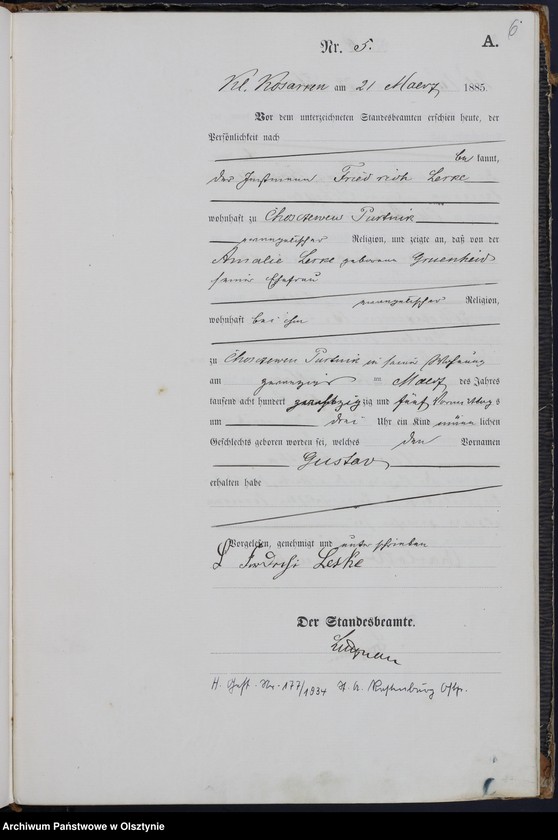 6
Nr. 5. A.
Kl. Kosarken am 21 Maerz 1885.
Vor dem unterzeichneten Standesbeamten erschien heute, der
Persönlichkeit nach
be kannt,
der Instmann Friedrich Leske
wohnhaft zu Choszewen Purtnik
evangelischer Religion, und zeigte an, daß von der
Amalie Leske geborene Gruenheid
seiner Ehefrau
evangelischer Religion,
wohnhaft bei ihm
zu Choszewen Purtnik in seiner Wohnung
am zwanzigsten Maerz des Jahres
tausend acht hundert achtzig zig und fünf Vormittag s
um drei Uhr ein Kind männ lichen
Geschlechts geboren worden sei, welches den Vornamen
Gustav
erhalten habe
Vorgelesen, genehmigt und unter schrieben
Leske
Der Standesbeamte.
H. Gest. Nr. 177/1934 St. A. Rastenburg Ostp.
Archiwum Państwowe w Olsztynie